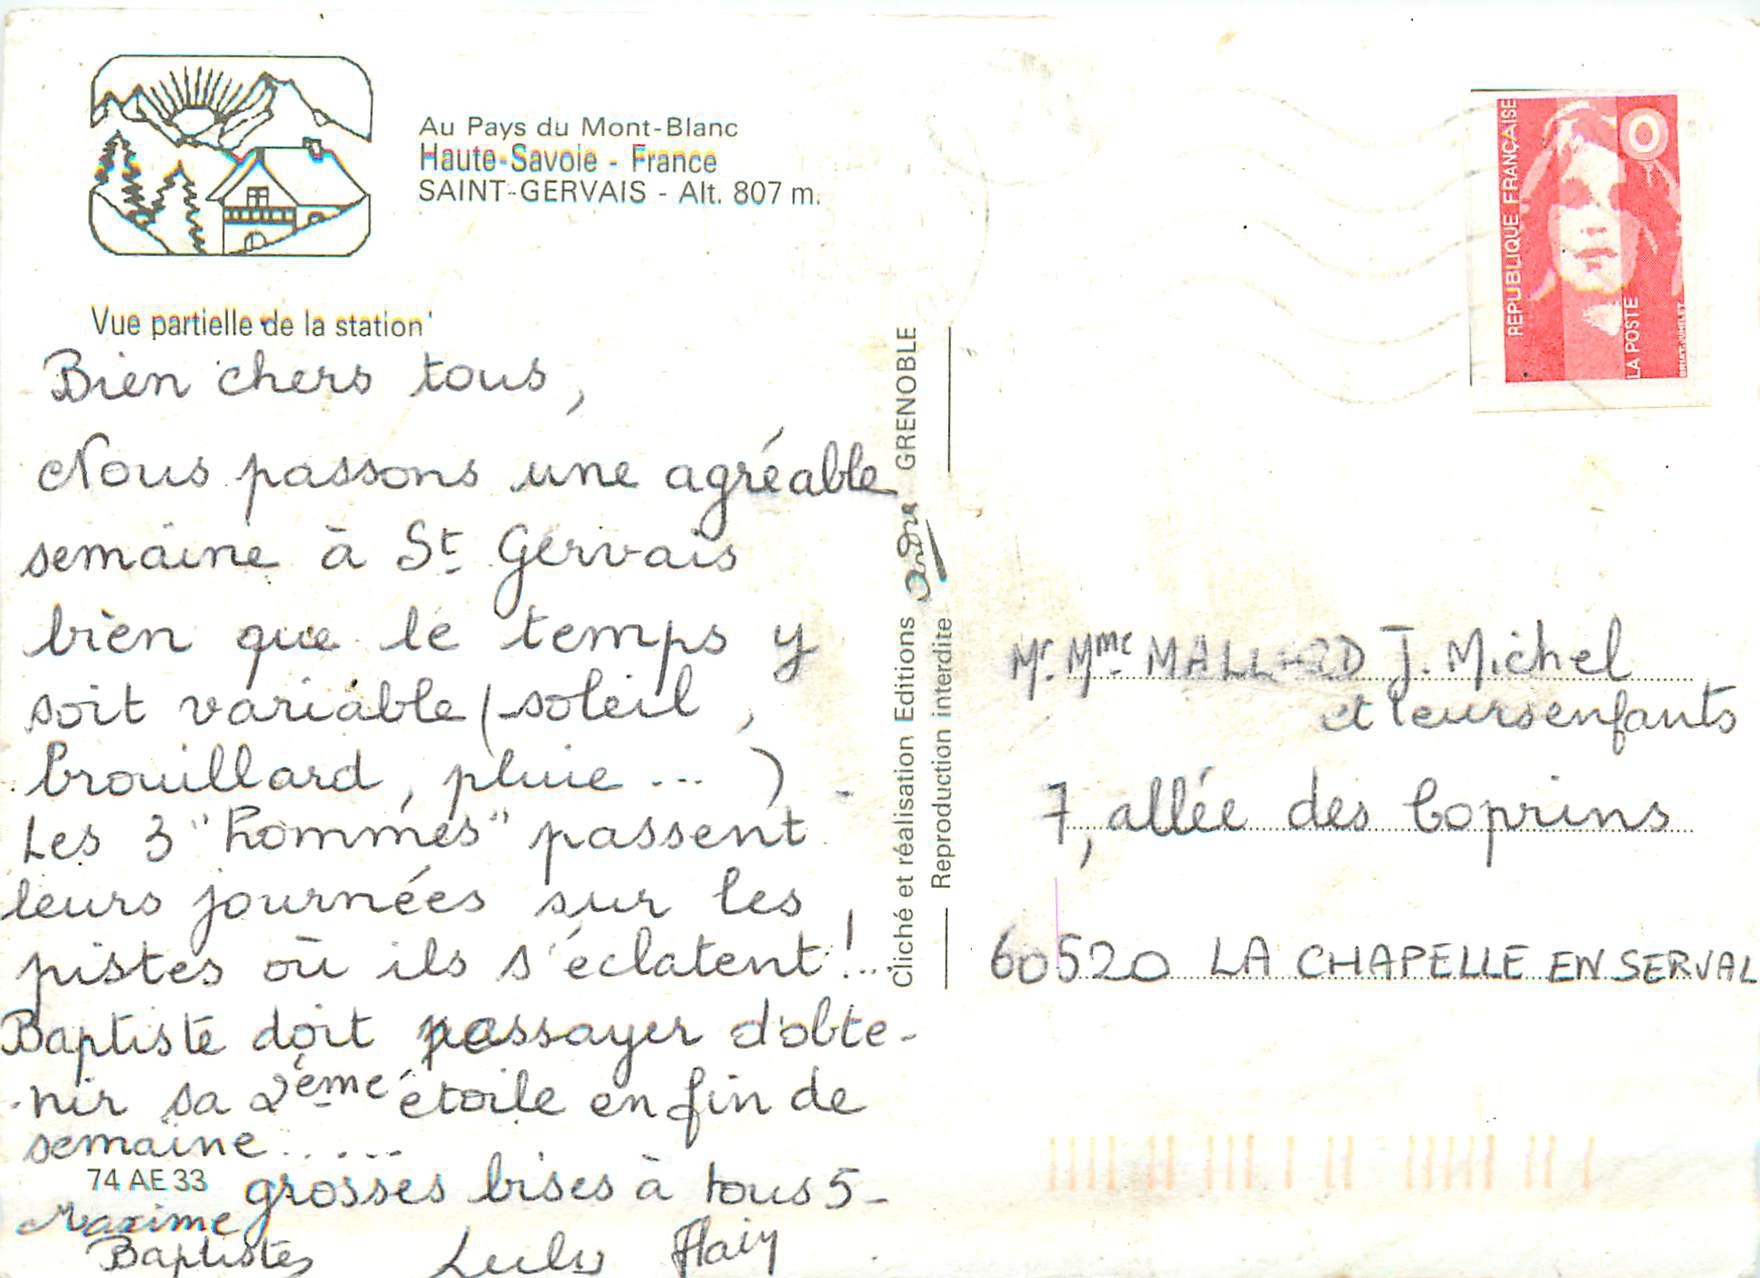 Au Pays du Mont-Blanc
Haute-Savoie - France
SAINT-GERVAIS - Alt. 807 m.
Vue partielle de la station
Bien chers tous,
Nous passons une agréable
semaine à St Gervais
bien que le temps y
soit variable (soleil,
brouillard, pluie ... ).
Les 3 "hommes" passent
leurs journées sur les
pistes où ils s'éclatent !...
Baptiste doit essayer d'obte-
nir sa 2ème étoile en fin de
semaine.....
74 AE 33
grosses bises à tous 5 -
Maxime
Baptiste Lulu
Cliché et réalisation Editions André GRENOBLE
Reproduction interdite
REPUBLIQUE FRANÇAISE
LA POSTE
BRIAT-JUMELET
Mr Mme J. Michel
et leurs enfants
7, allée des Coprins
60520 LA CHAPELLE EN SERVAL